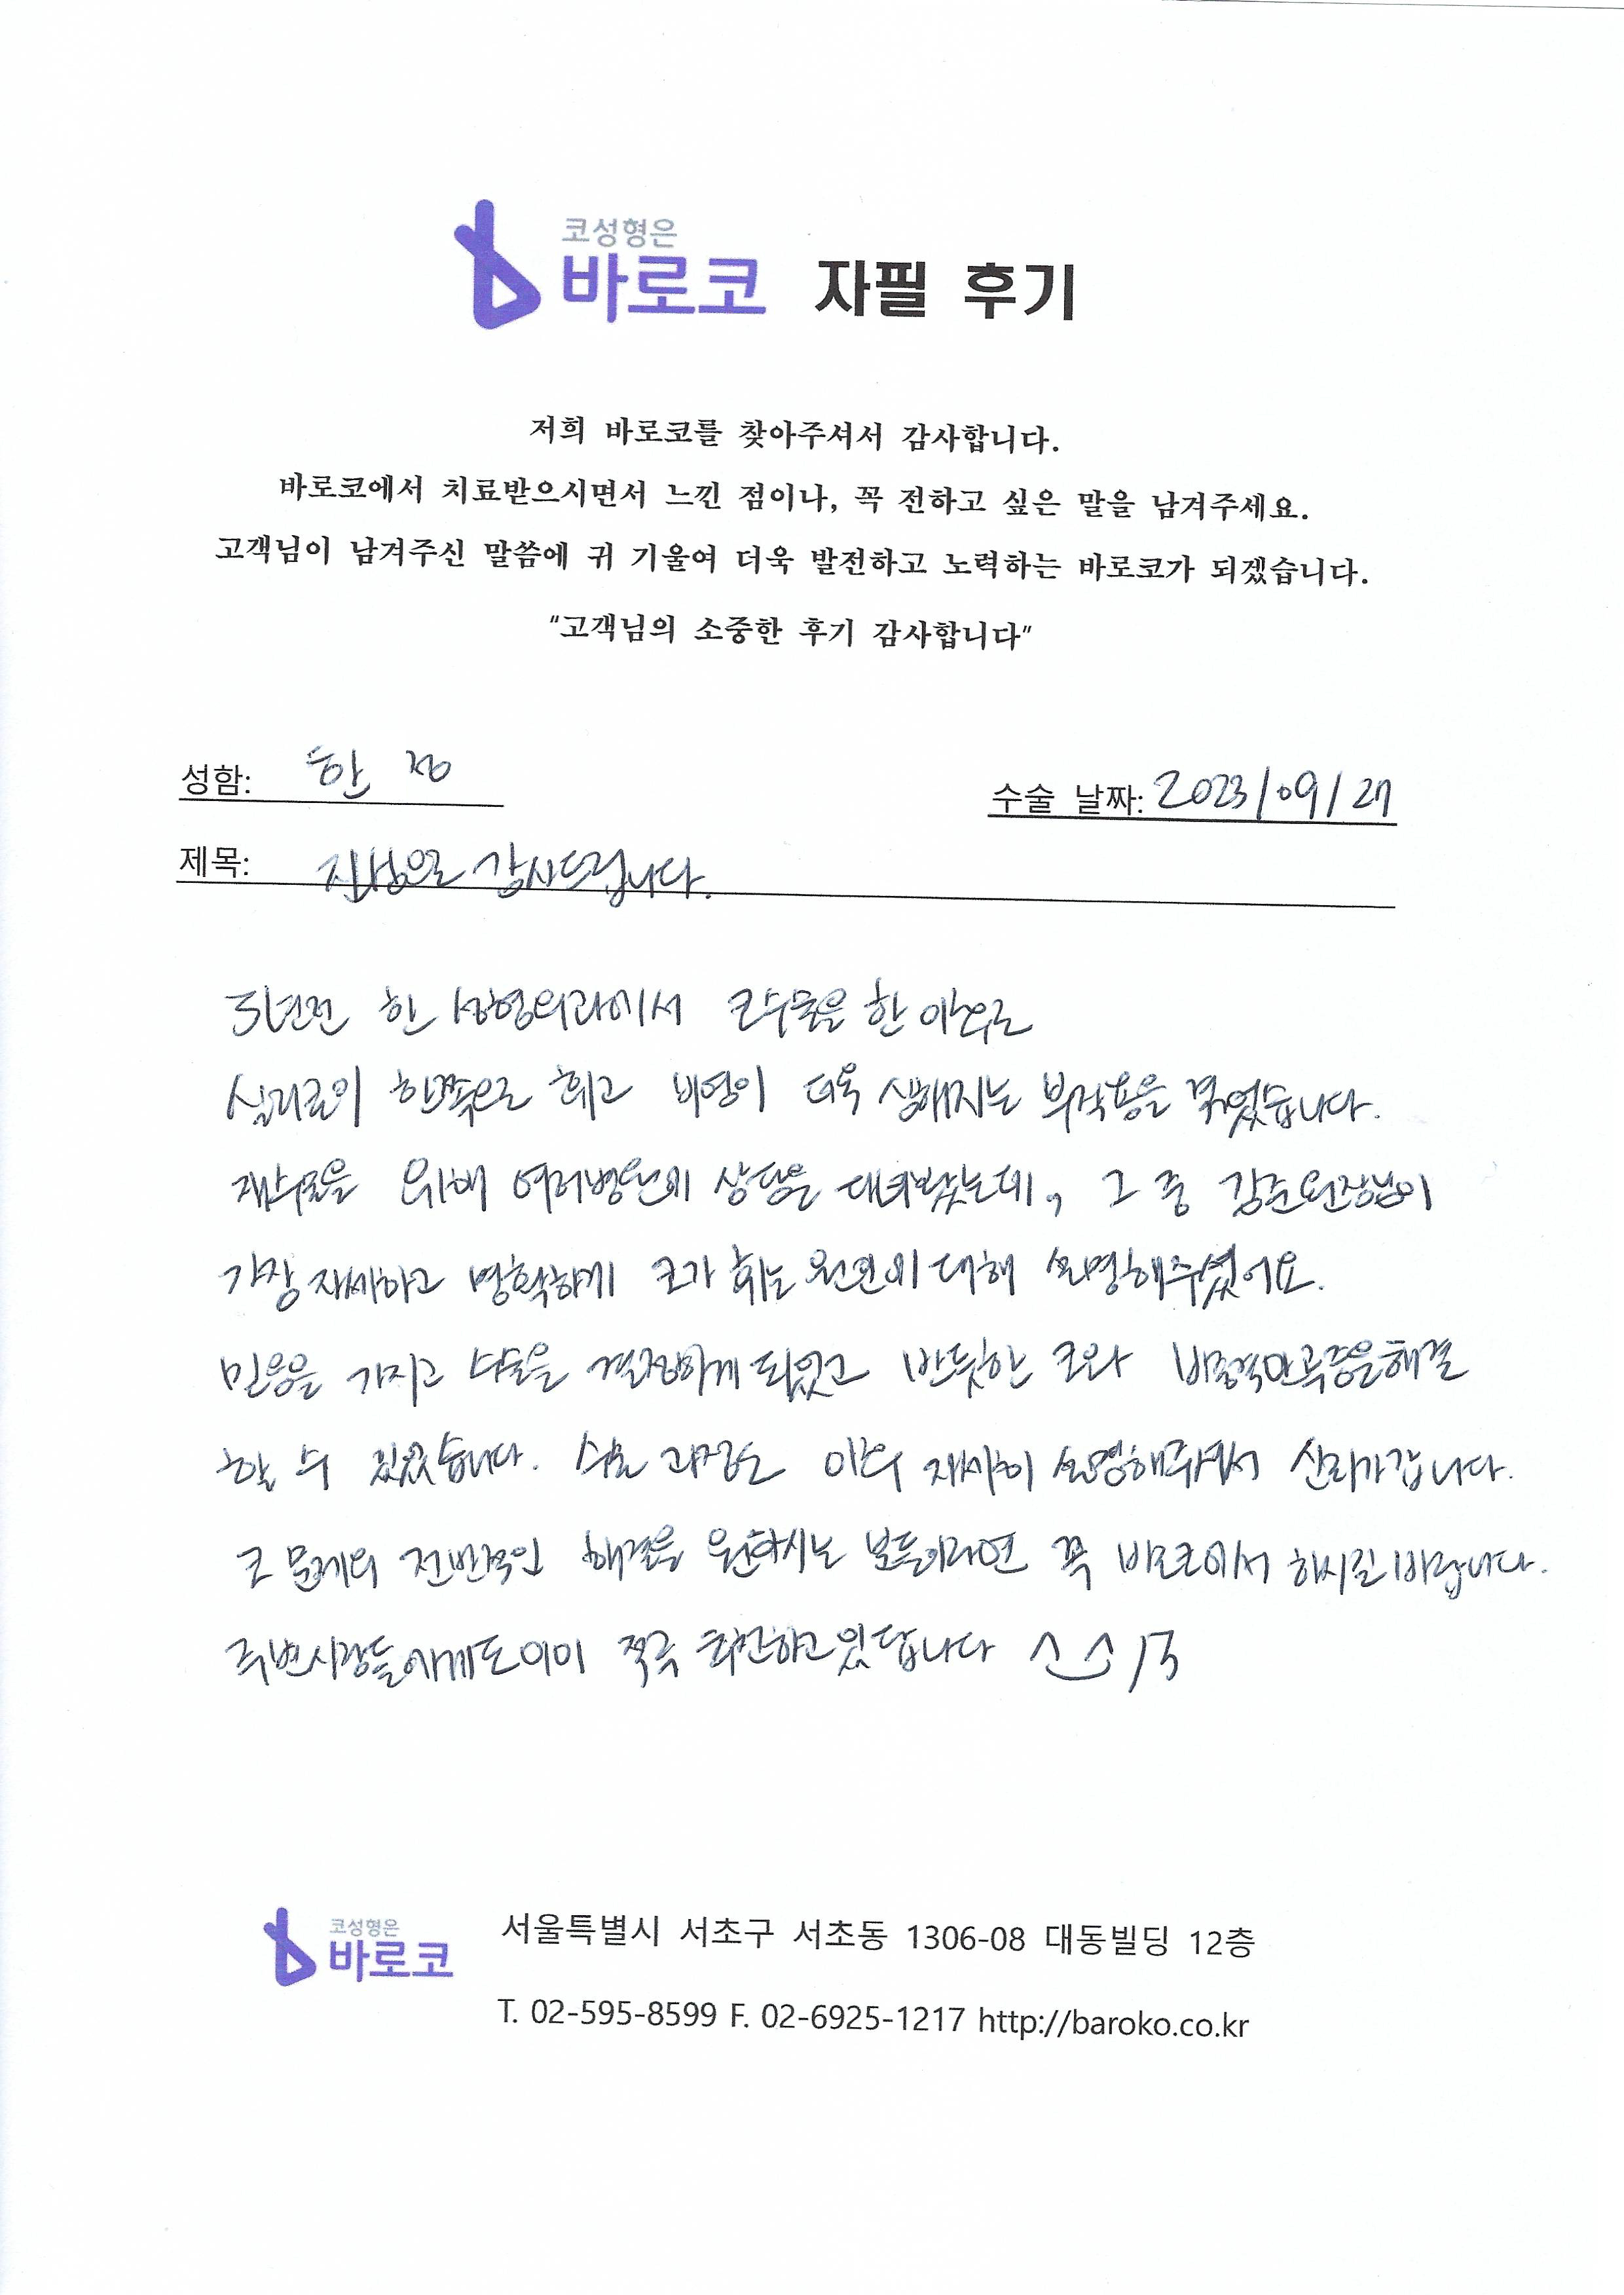 코성형은
바로코 자필 후기
저희 바로코를 찾아주셔서 감사합니다.
바로코에서 치료받으시면서 느낀 점이나, 꼭 전하고 싶은 말을 남겨주세요.
고객님이 남겨주신 말씀에 귀 기울여 더욱 발전하고 노력하는 바로코가 되겠습니다.
"고객님의 소중한 후기 감사합니다"
성함: 한 정 수술 날짜: 2023/09/27
제목: 진심으로 감사드립니다.
3년전 한 성형외과에서 코수술을 한 이후로
실리콘이 한쪽으로 휘고 비염이 더욱 심해지는 부작용을 겪었습니다.
재수술을 위해 여러병원에 상담을 다녀봤는데, 그 중 김준원장님이
가장 자세하고 명확하게 코가 휘는 원인에 대해 설명해주셨어요.
믿음을 가지고 수술을 결정하게 되었고 반듯한 코와 비중격만곡증을해결
할 수 있었습니다. 수술 과정도 아주 자세히 설명해주셔서 신뢰가갑니다.
코 문제의 전반적인 해결을 원하시는 분들이라면 꼭 바로코에서 하시길 바랍니다.
주변사람들에게도 이미 적극 추천하고있답니다 ^_^
코성형은
바로코
서울특별시 서초구 서초동 1306-08 대동빌딩 12층
T. 02-595-8599 F. 02-6925-1217 http://baroko.co.kr